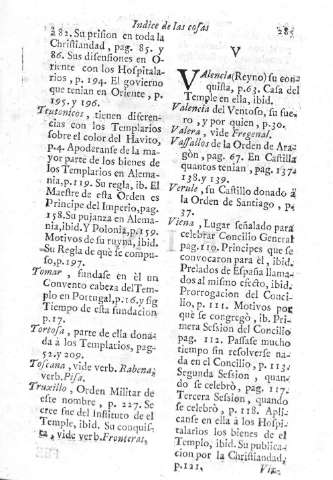 Indice de las cosas
285
282. Su prision en toda la
Christiandad, pag. 85. y
86. Sus disensiones en O-
riente con los Hospitala-
rios, p. 194. El govierno
que tenian en Oriente, p.
195. y 196.
Trutonicos, tienen diferen-
cias con los Templarios
sobre el color del Havito,
p.4. Apoderanse de la ma-
yor parte de los bienes de
los Templarios en Alema-
nia, p.119. Su regla, ib. El
Maestre de esta Orden es
Principe del Imperio, pag.
158. Su pujanza en Alema-
nia, ibid. Y Polonia, p.159.
Motivos de su ruyna, ibid.
Su Regla de què se compu-
so, p.197.
Tomar, fundase en èl un
Convento cabeza del Tem-
plo en Portugal, p.16. y sig
Tiempo de esta fundacion
p.17.
Tortosa, parte de ella dona-
da à los Templarios, pag.
52. y 209.
Toscana, vide verb. Rabena,
verb. Pisa.
Truxillo, Orden Militar de
este nombre, p. 227. Se
cree fue del Instituto de el
Temple, ibid. Su conquis-
ta, vide verb. Fronteras.
V
VAlencia (Reyno) su con-
quista, p.63. Casa del
Temple en ella, ibid.
Valencia del Ventoso, su fue-
ro, y por quien, p.30.
Valera, vide Fregenal.
Vassallos de la Orden de Ara-
gòn, pag. 67. En Castilla
quantos tenian, pag. 137.
138. y 139.
Verule, su Castillo donado à
la Orden de Santiago, p.
37.
Viena, Lugar señalado para
celebrar Concilio General
pag. 119. Principes que se
convocaron para èl, ibid.
Prelados de España llama-
dos al mismo efecto, ibid.
Prorrogacion del Conci-
lio, p. 111. Motivos por
què se congregò, ib. Pri-
mera Session del Concilio
pag. 112. Passase mucho
tiempo sin resolverse na-
da en el Concilio, p. 113.
Segunda Session, quan-
do se celebrò, pag. 117.
Tercera Session, quando
se celebrò, p. 118. Apli-
canse en ella à los Hospi-
talarios los bienes de el
Templo, ibid. Su publica-
cion por la Christiandad,
p.121.